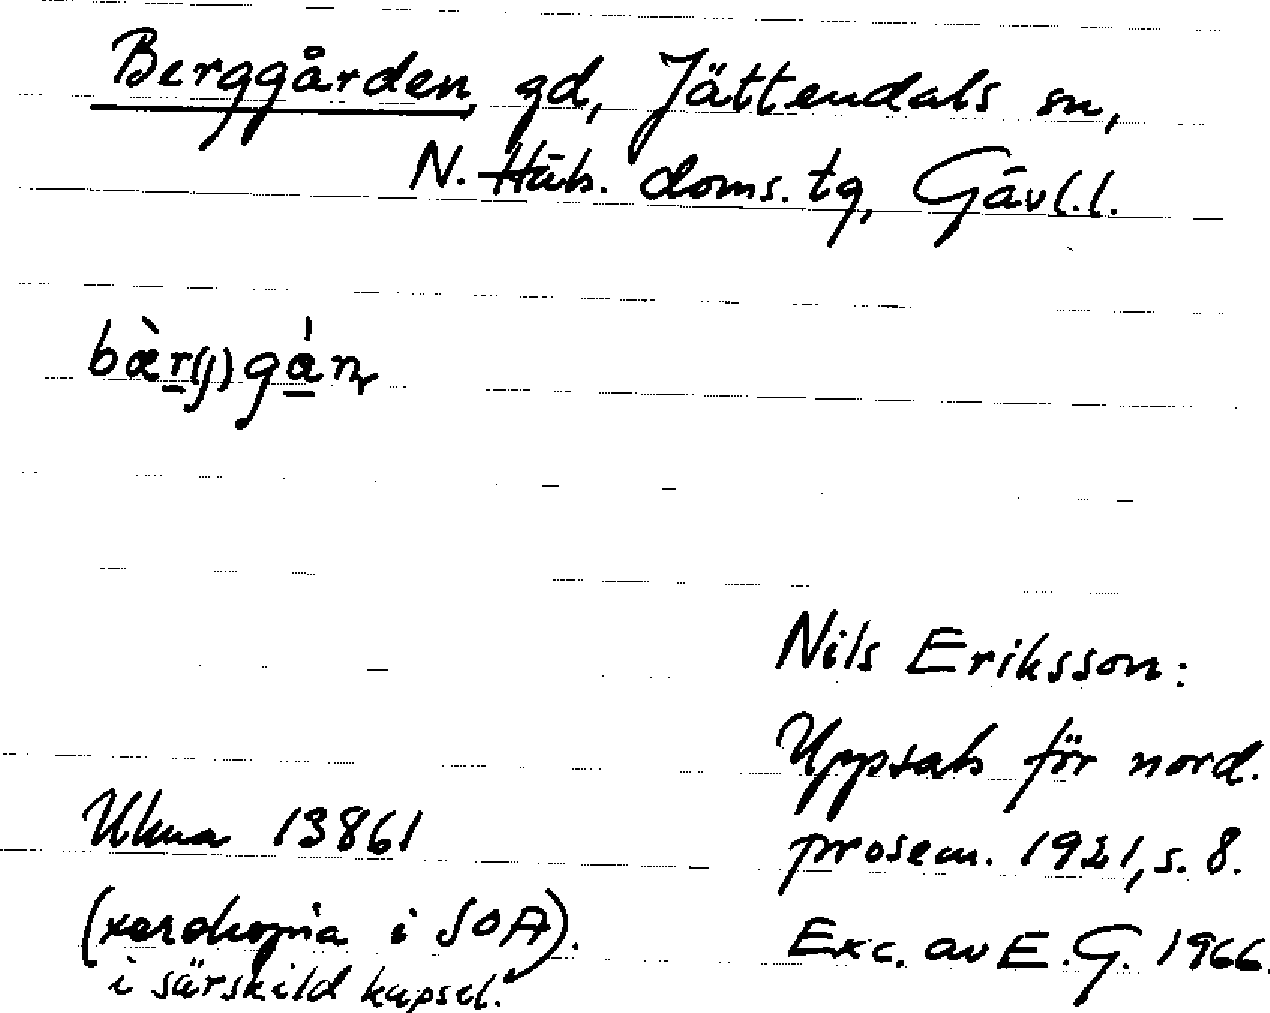 Berggården gd, Jättendals sn,
N. Häls. doms. tg, Gävl.l.
bæ̀r(j)gán
Nils Eriksson:
Uppsats för nord.
prosem. 1921, s. 8.
Ukua 13861
(xerokopia i SOA).
Exc. av E.G. 1966.
i särskild kapsel.